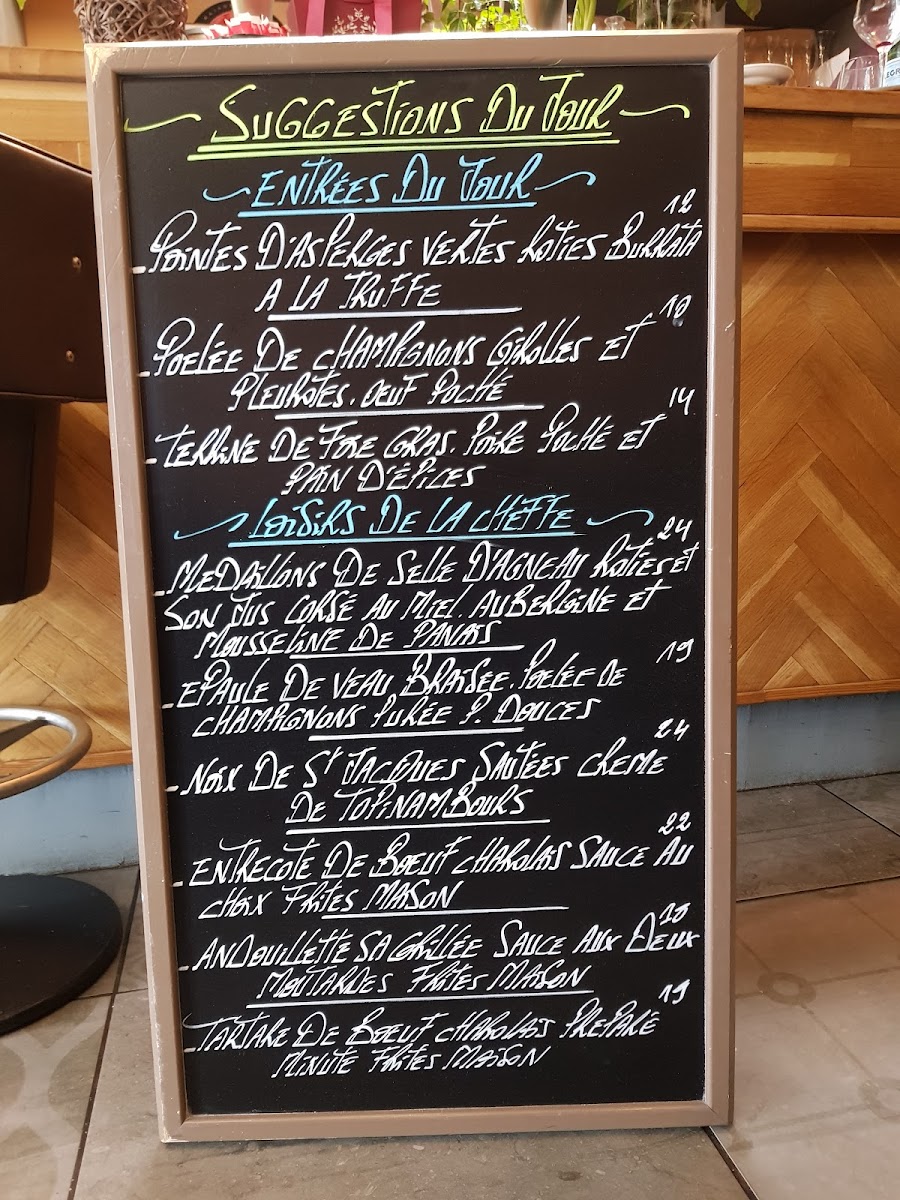 SUGGESTIONS DU JOUR
ENTRÉES DU JOUR
12
-POINTES D'ASPERGES VERTES ROTIES BURRATA
A LA TRUFFE
10
-POELÉE DE CHAMPIGNONS GIROLLES ET
PLEUROTES. OEUF POCHÉ
14
-TERRINE DE FOIE GRAS. POIRE POCHÉ ET
PAIN D'ÉPICES
LOISIRS DE LA CHEFFE
24
-MEDAILLONS DE SELLE D'AGNEAU ROTIES ET
SON JUS CORSÉ AU MIEL. AUBERGINE ET
MOUSSELINE DE PANAIS
19
-EPAULE DE VEAU BRAISEE. POELÉE DE
CHAMPIGNONS PURÉE P. DOUCES
24
-NOIX DE ST JACQUES SAUTÉES CREME
DE TOPINAMBOURS
22
-ENTRECOTE DE BOEUF CHAROLAIS SAUCE AU
CHOIX FRITES MAISON
-ANDOUILLETTE 5A GRILLÉE SAUCE AUX DEUX
MOUTARDES FRITES MAISON
19
-TARTARE DE BOEUF CHAROLAIS PREPARÉ
MINUTE FRITES MAISON